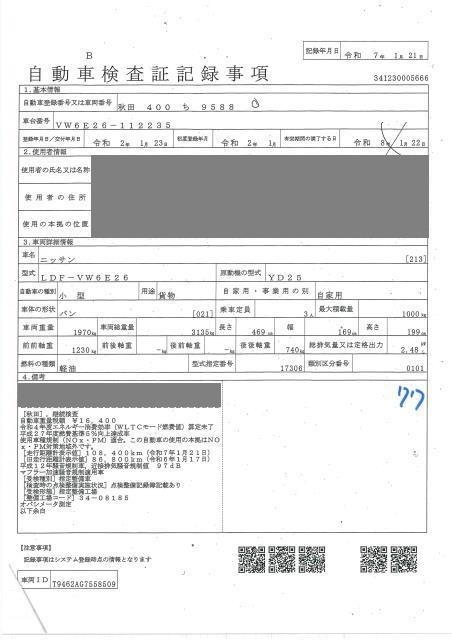 B
記録年月日 令和 7年 1月21日
自動車検査証記録事項
341230005666
1.基本情報
自動車登録番号又は車両番号 秋田 400 ち 9588
車台番号 VW6E26-112235
登録年月日/交付年月日 令和 2年 1月23日 初度登録年月 令和 2年 1月 有効期間の満了する日 令和 8年 1月22日
2.使用者情報
使用者の氏名又は名称
使用者の住所
使用の本拠の位置
3.車両詳細情報
車名 ニッサン [213]
型式 LDF-VW6E26 原動機の型式 YD25
自動車の種別 小型 用途 貨物 自家用・事業用の別 自家用
車体の形状 バン [021] 乗車定員 3人 最大積載量 1000kg
車両重量 1970kg 車両総重量 3135kg 長さ 469cm 幅 169cm 高さ 199cm
前前軸重 1230kg 前後軸重 -kg 後前軸重 -kg 後後軸重 740kg 総排気量又は定格出力 2.48L
燃料の種類 軽油 型式指定番号 17306 類別区分番号 0101
4.備考
[秋田],継続検査
自動車重量税額 ¥16,400
令和4年度エネルギー消費効率(WLTCモード燃費値)算定未了
平成27年度燃費基準5%向上達成車
使用車種規制(NOx・PM)適合。この自動車の使用の本拠はNO
x・PM対策地域外です。
[走行距離計表示値]108,400km(令和7年1月21日)
[旧走行距離計表示値]86,800km(令和6年1月17日)
平成12年騒音規制車,近接排気騒音規制値 97dB
マフラー加速騒音規制適用車
[受検種別]指定整備車
[検査時の点検整備実施状況]点検整備記録簿記載あり
[受検形態]指定整備工場
[整備工場コード]34-08185
オパシメータ測定
以下余白
【注意事項】
記録事項はシステム登録時点の情報となります
車両ID T9462AG7558509